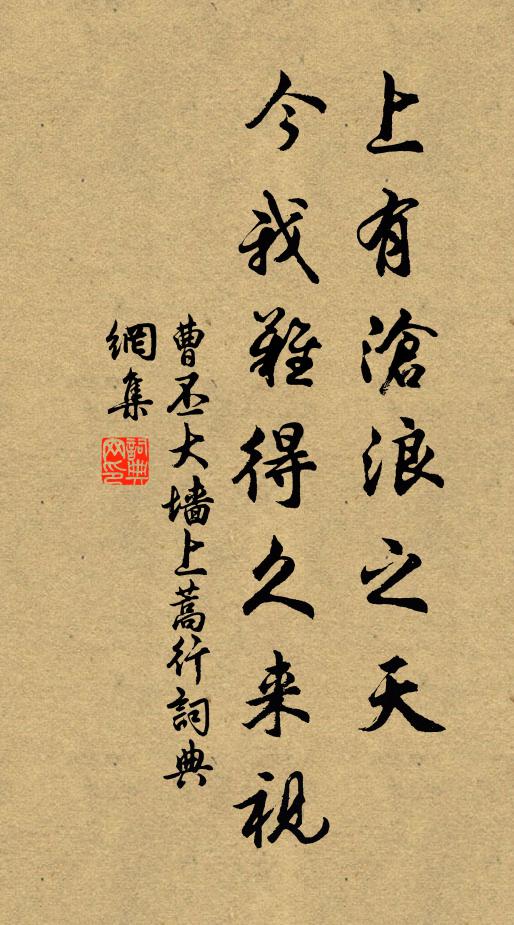 上有滄浪之天
今我難得久来視
曹丕大墙上蒿行詞典
網集
詞典网印